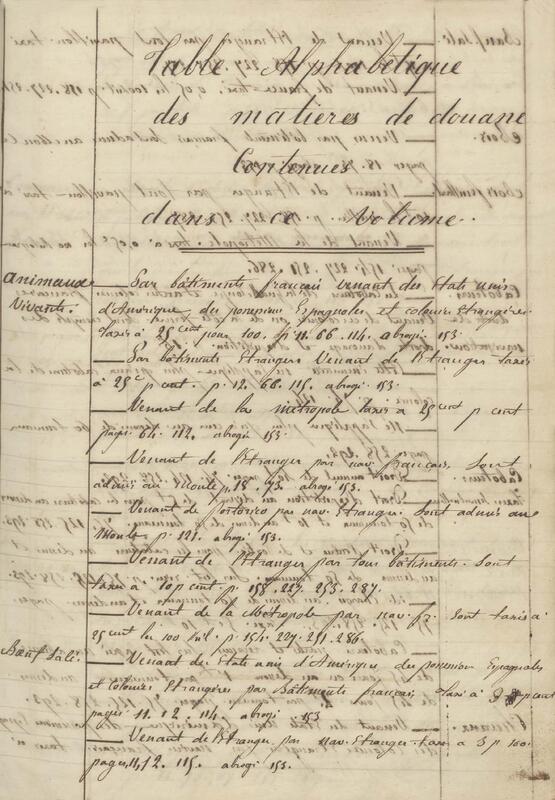 Table Alphabétique
des matieres de douane
Contenues
dans ce volume.
Animaux Vivants.
Par bâtiments français venant des Etats unis
d'Amérique, des possessions Espagnoles et colonies Etrangères
taxés à 25 cent pour 100. p. 11. 66. 114. abrogé 153.
Par bâtiments Etrangers Venant de l'Etranger taxés
à 25 p cent. p. 12. 66. 115. abrogé 153.
Venant de la métropole taxés à 25 cent p cent
pages 64. 112. abrogé 153.
Venant de l'Etranger par nav. français, sont
admis au Moule p. 18. 73. abrogé 153.
Venant de Portorico par nav. Etranger. sont admis au
Moule p. 121. abrogé 153.
Venant de l'Etranger par tous bâtiments. sont
taxés à 10 p cent. p. 158. 227. 253. 287.
Venant de la Métropole par nav. fr. sont taxés à
25 cent les 100 kil. p. 154. 227. 251. 286
Bœuf salé.
Venant des Etats unis d'Amérique des possessions Espagnoles
et colonies Etrangères par Bâtiments français taxé à p cent
pages 11. 114. abrogé 153
Venant de l'Etranger par nav. Etranger taxé à 3 p 100.
pages 11, 12. 115. abrogé 153.